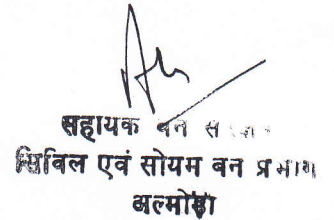 सहायक वन
सिविल एवं सोयम वन प्रभाग
अल्मोड़ा